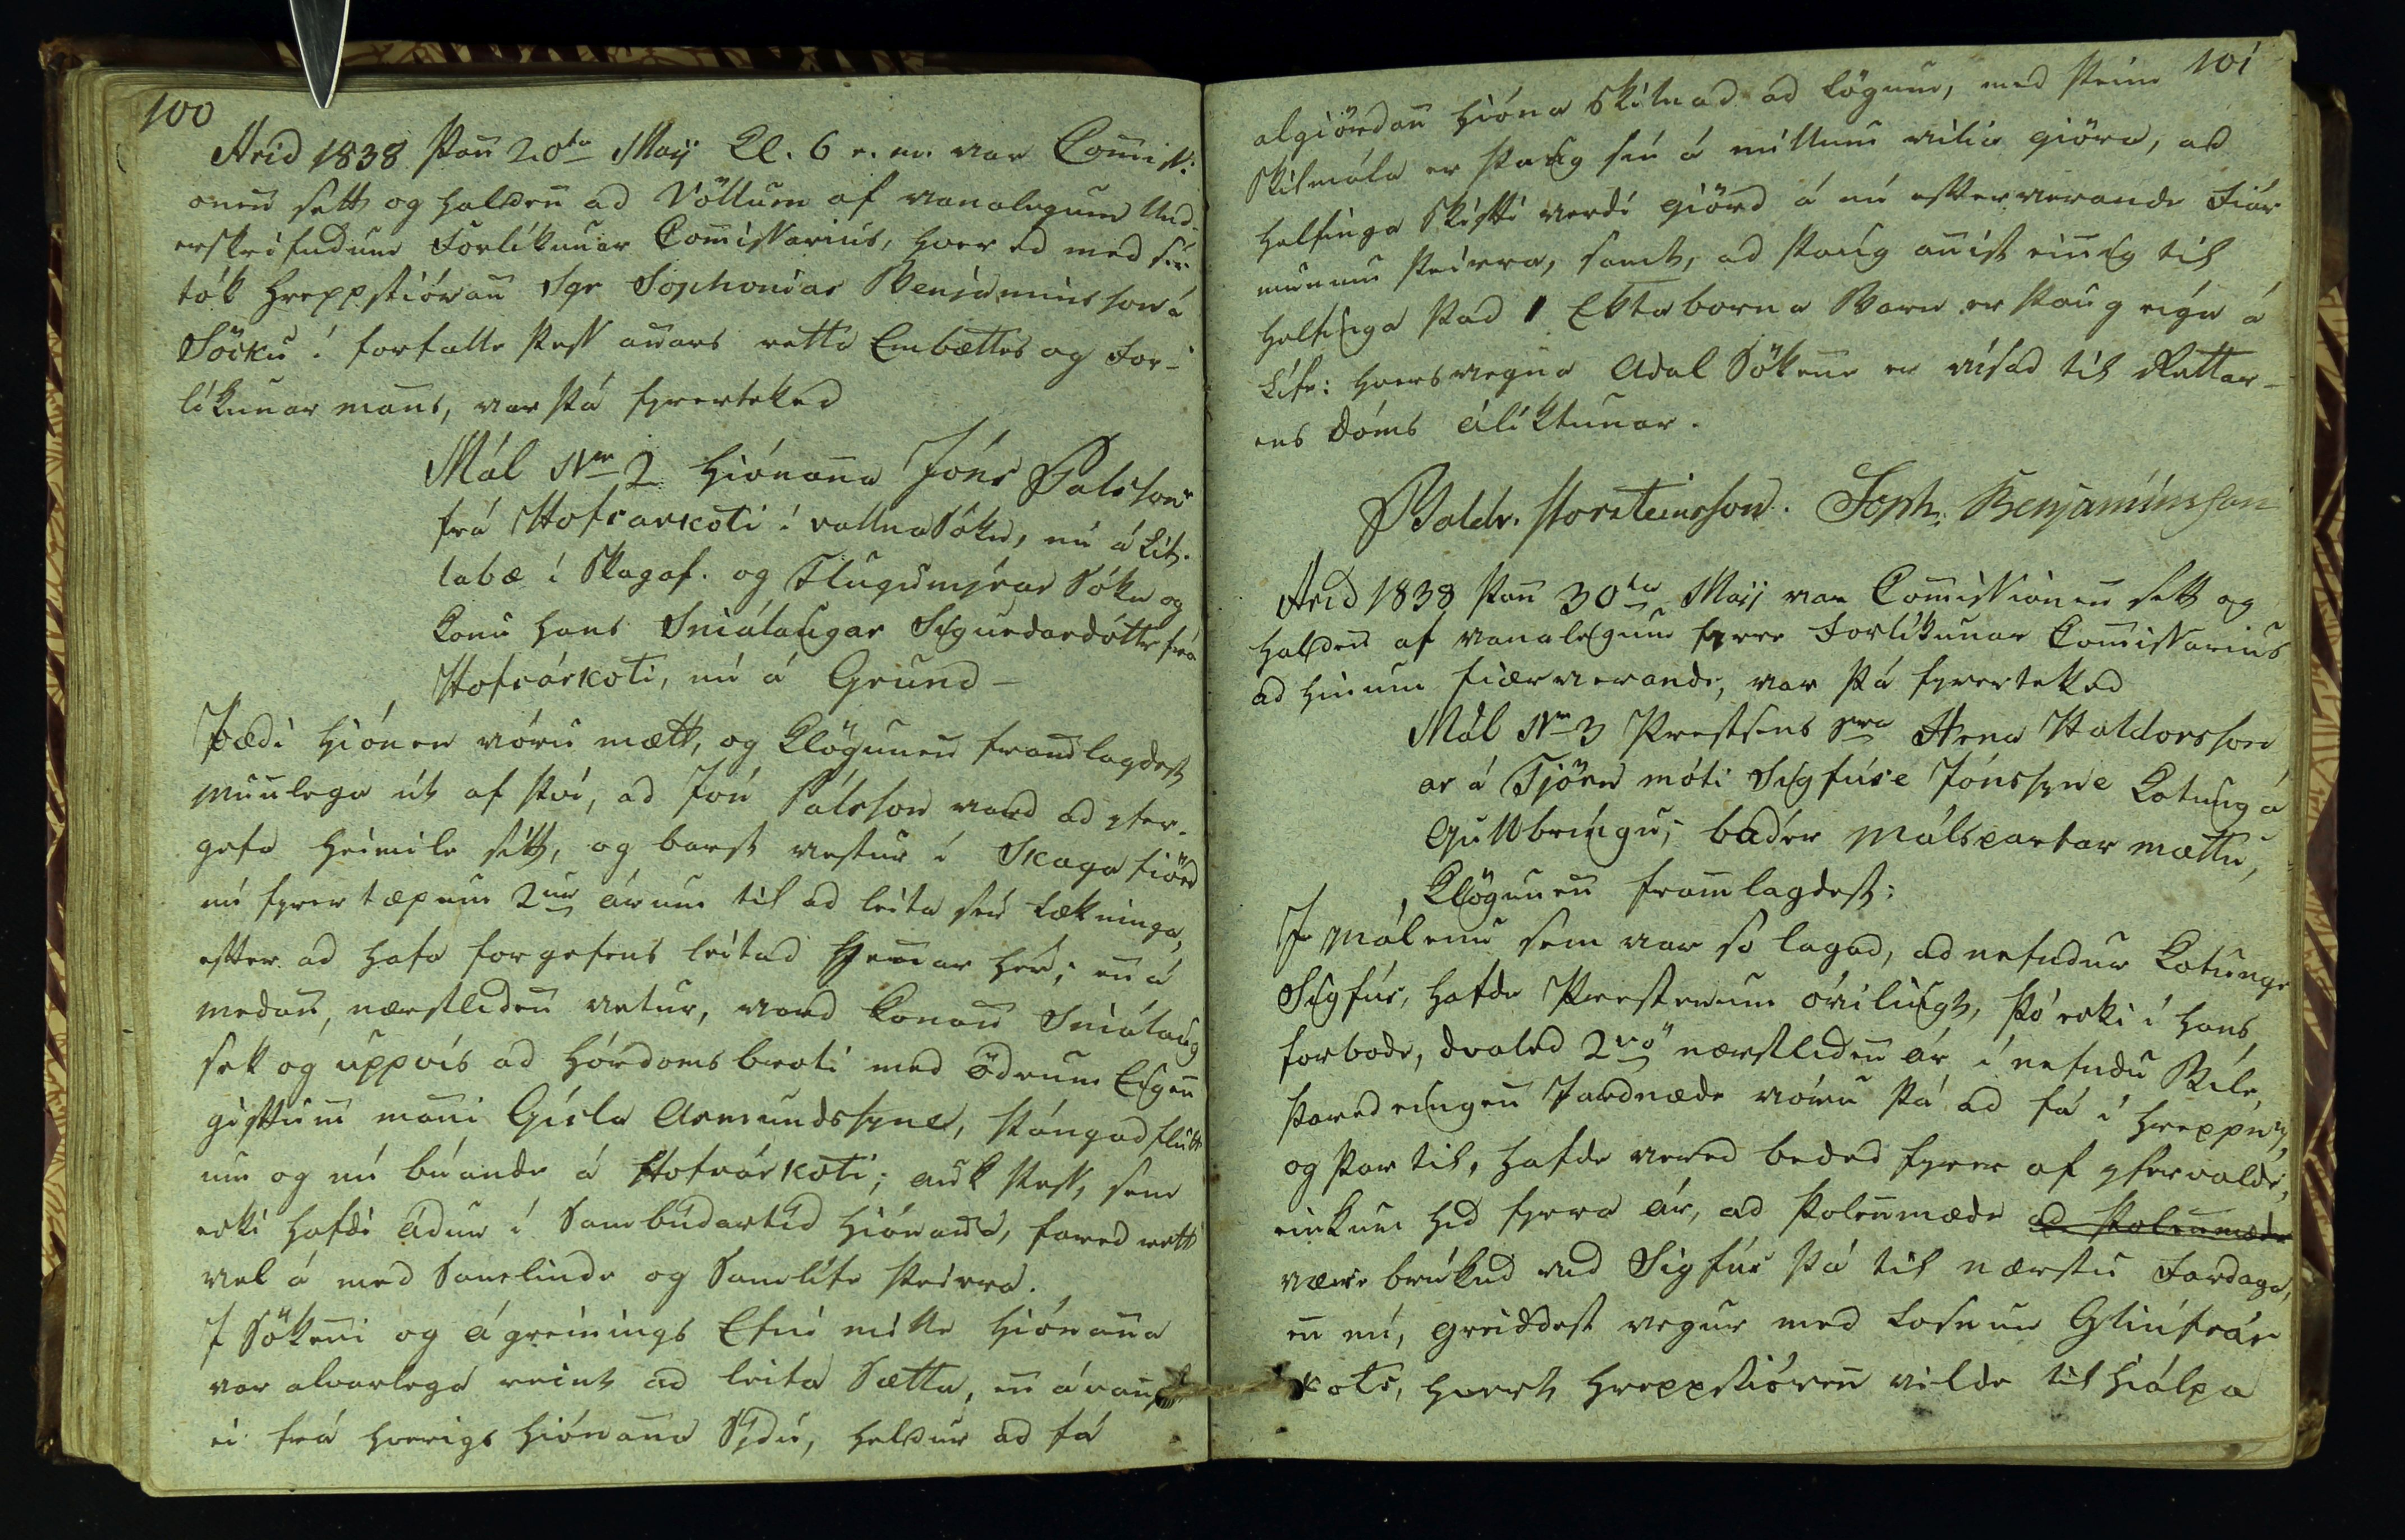 100
Arid 1838 þan̄ 20ta Maji Cl. 6 e. m. var Com̄iss:
onen̄ sett og halden̄ ad Völlum af vanalegum Und-
erskrifudum Forlikunar Com̄issarius, hver ed med sér
tók hreppstióran̄ Sgr Sophonias Benjaminsson á
Söcku í forfalle þess an̄ars retta Embættes og For-
líkunar man̄s, var þá fyrerteked
Mál Nr 2 hiónan̄a Jóns Palssons
frá Hofsarkoti í vallnasókn, nú á Lit-
labæ í Skagaf. og Flugumýrar Sókn og
konu hans Sniálaugar Sigurdardóttr frá
Hofsárkoti, nú á Grund —
Bædi hiónen vóru mætt, og Klögunen̄ fram̄lagdest
munlega út af því, ad Jón Pálsson vard ad yfer-
gefa heimile sitt, og barst vestur í Skagafiörd
nú fyrer tæpum 2ur árum til ad leita sér lækninga,
efter ad hafa forgefens leitad þen̄ar hér; en̄ á
medan, nærstliden̄ vetur, vard konan̄ Sniálaug
sek og uppvís ad hórdomsbroti med ödrum Eigen̄
giftum man̄i Gísla Asmundssyne, þángad flutt-
um og nú búande á Hofsárkoti; auk þess, sem
ecki hafdi ádur í Sambúdartíd hiónan̄a, fared rett
vel á med Samlinde og Samlífe þeirra.
I Sökenni og ágreinings Efni mille hiónan̄a
var alvarlega reint ad leita Sætta, en̄ ávan̄st
ei frá hverigs hiónan̄a Sýdu, heldur ad fá
101
algiördan̄ hióna Skilnad ad lögum, med þeim
Skilmála er þaug sín á millum vilia giöra, ad
helfinga Skifti verdi giörd á nú efterverande Fiár
munum þeirra, samt, ad þaug an̄ist ein̄eg til
helfinga þad 1 Ektaborna Barn er þaug eiga á
Lífe: hversvegna Adal Sökenne er vísad til Rettar-
ens dóms álíktunar.
Baldv. Þorsteinsson. Soph. Benjamínsson
Arid 1838 þan̄ 30ta Maji var Com̄issionen̄ sett og
halden̄ af vanalegum fyrer Forlíkunar Com̄issarius
ad hinum fiærverande, var þá fyrerteked
Mál Nr 3 Prestsens Sra Arna Haldorsson
ar á Tjörn móti Sigfúse Jónssyne Kotung á
Gullbríngu; báder málspartar mættu,
Klögunen̄ fram̄lagdest:
I málenu sem var so lagad, ad nefndur Kotunge
Sigfús, hafde Prestenum óviliugt, þó ecki í hans
forbode, dvaled 2vö nærstliden̄ ár í nefndu Bíle,
þared eingen̄ Jardnæde vóru þá ad fá í hreppnu,
og þar til, hafde vered beded fyrer af yfervalde,
einkum hid fyrra ár, ad þolen̄mæde ad þolen̄mæde
være brúkud vid Sigfús þá til nærstu Fardaga,
en̄ nú, greiddest vegur med Losnun Gliúfrár
kots, hvert hreppstióren̄ vilde til hiálpa